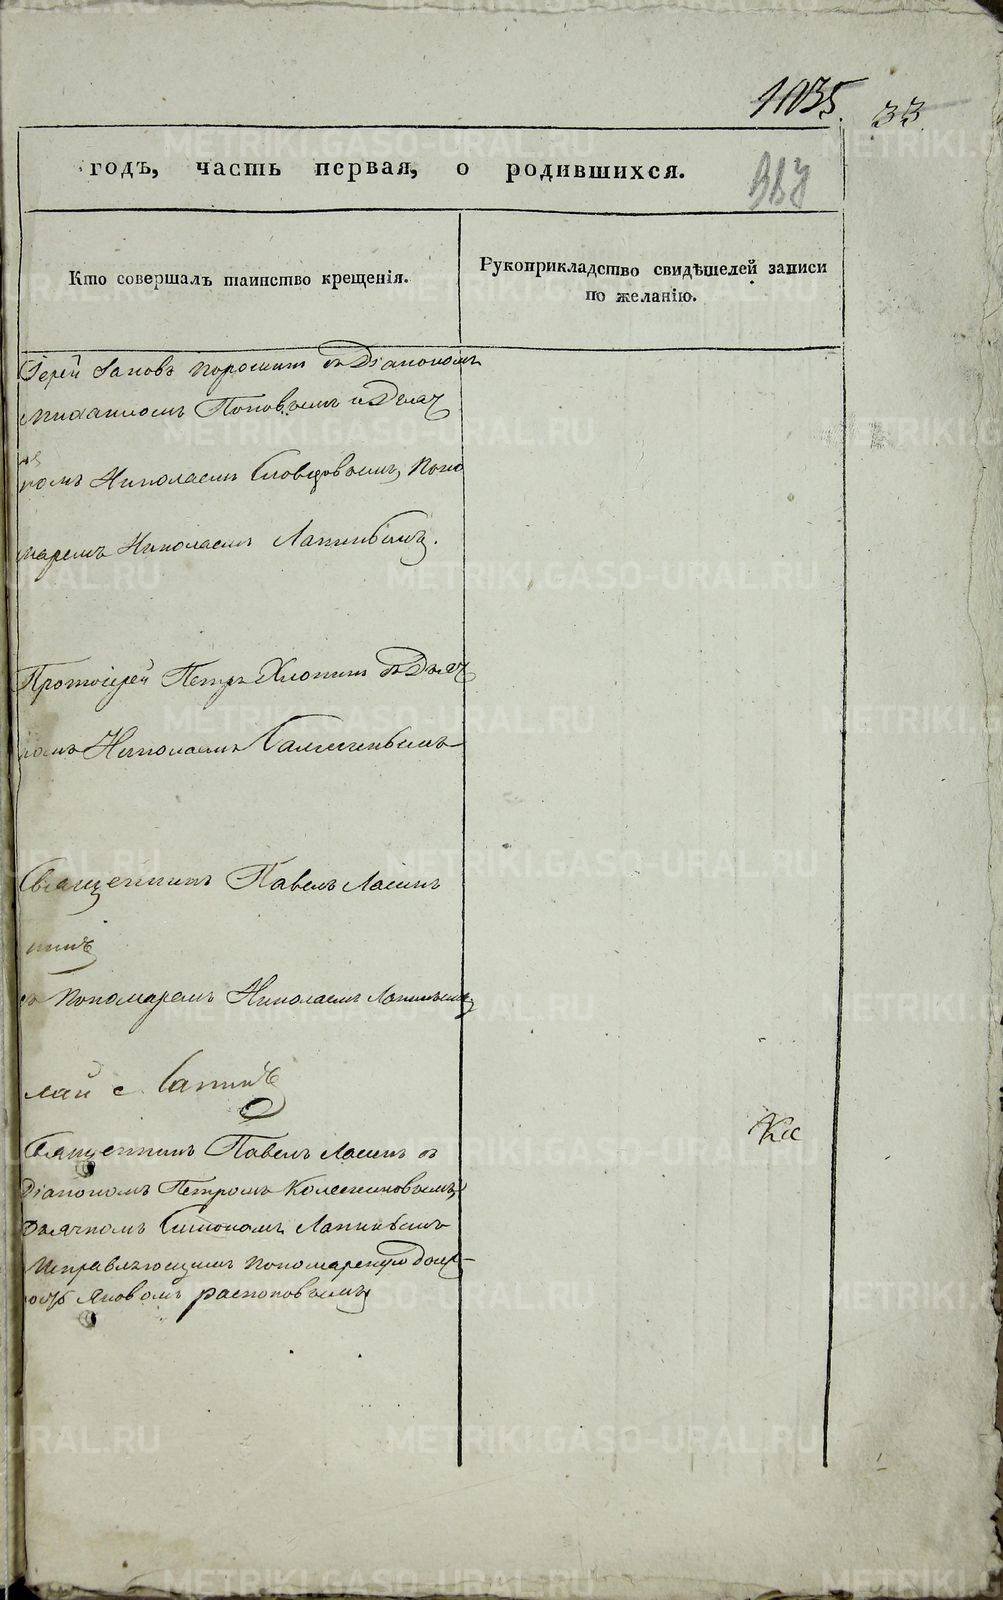 1035. 33
годъ, часть первая, о родившихся.
Кто совершалъ таинство крещенія.
Рукоприкладство свидѣтелей записи
по желанію.
Іерей Іаковъ Порошинъ съ Діакономъ
Михаиломъ Поповымъ и Дьяч
комъ Николаемъ Словцовымъ, Поно
маремъ Николаемъ Лапинымъ.
Протоіерей Петръ Хлопинъ съ Дьяч
комъ Николаемъ
Священникъ Павелъ
съ Пономаремъ Николаемъ Лапинымъ
Священникъ Павелъ съ
Діакономъ Петромъ Колесниковымъ,
Дьячкомъ Симономъ Лапинымъ
Исправляющимъ Пономарскую долж-
ность Яковомъ Распоповымъ
METRIKI.GASO-URAL.RU